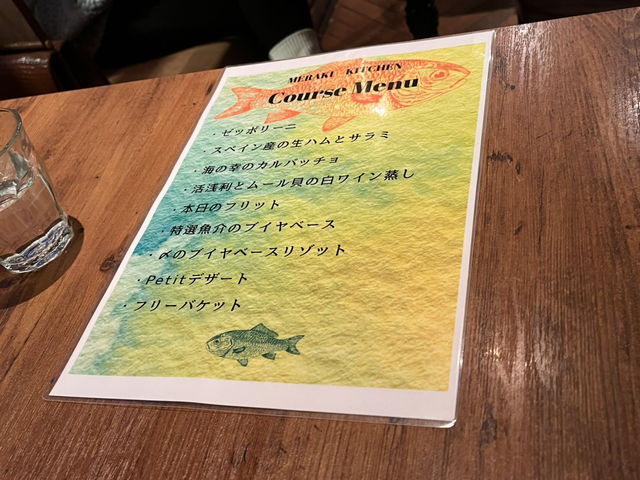 MERAKI KITCHEN
Course Menu
・ゼッポリーニ
・スペイン産の生ハムとサラミ
・海の幸のカルパッチョ
・活浅利とムール貝の白ワイン蒸し
・本日のフリット
・特選魚介のブイヤベース
・〆のブイヤベースリゾット
・Petitデザート
・フリーバケット